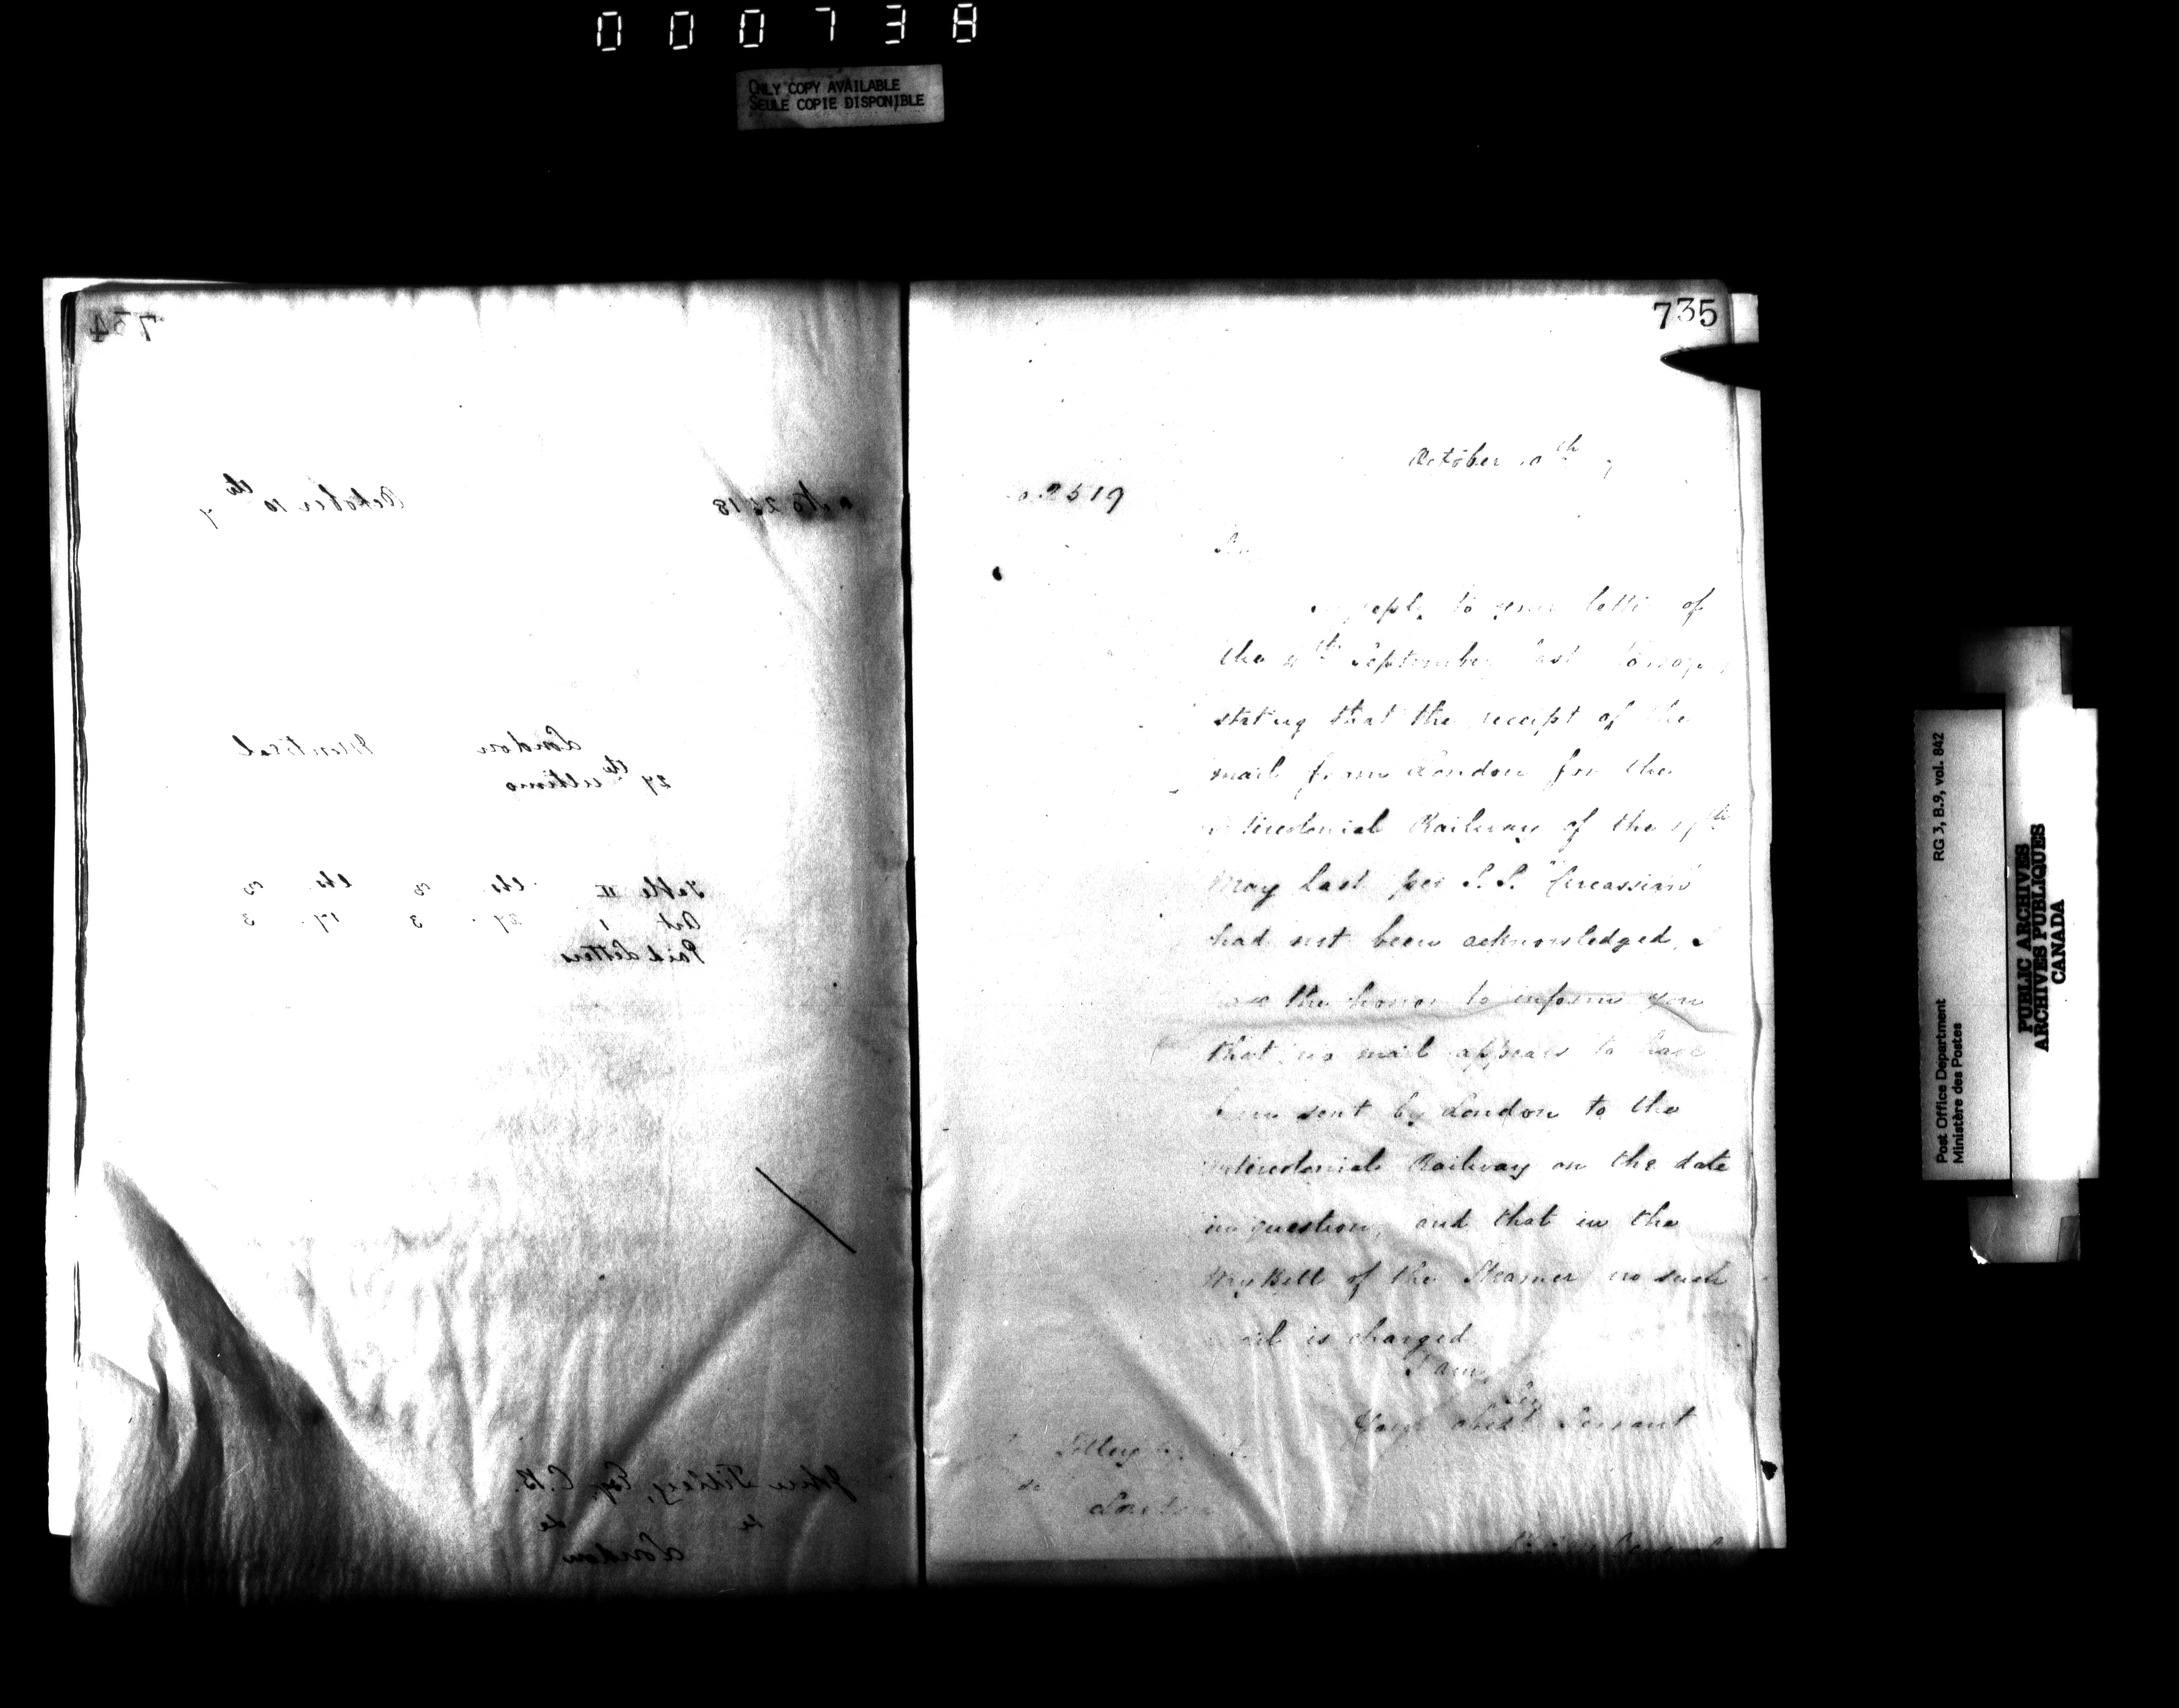 000738
ONLY COPY AVAILABLE
SEULE COPIE DISPONIBLE
734
No 2518
October 10th 7
London Montreal
27th ultimo
Table II lbs. oz lbs. oz
Art 1 27. 3 17. 3
Paid Letters
John Tilley, Esq. C.B.
&c &c
London
735
October 10th 7
2519
Sir
reply to your letter of
the September last
stating that the receipt of the
mail from London for the
Intercolonial Railway of the
May last per S.S. "Circassian"
had not been acknowledged, I
have the honor to inform you
that no mail appears to have
been sent by London to the
Intercolonial Railway on the date
in question, and that in the
Way Bill of the Steamer no such
mail is charged
I am,
Sir
Your obedt Servant
Tilley
&c
London
Post Office Department
Ministère des Postes
RG 3, B.9, vol. 842
PUBLIC ARCHIVES
ARCHIVES PUBLIQUES
CANADA